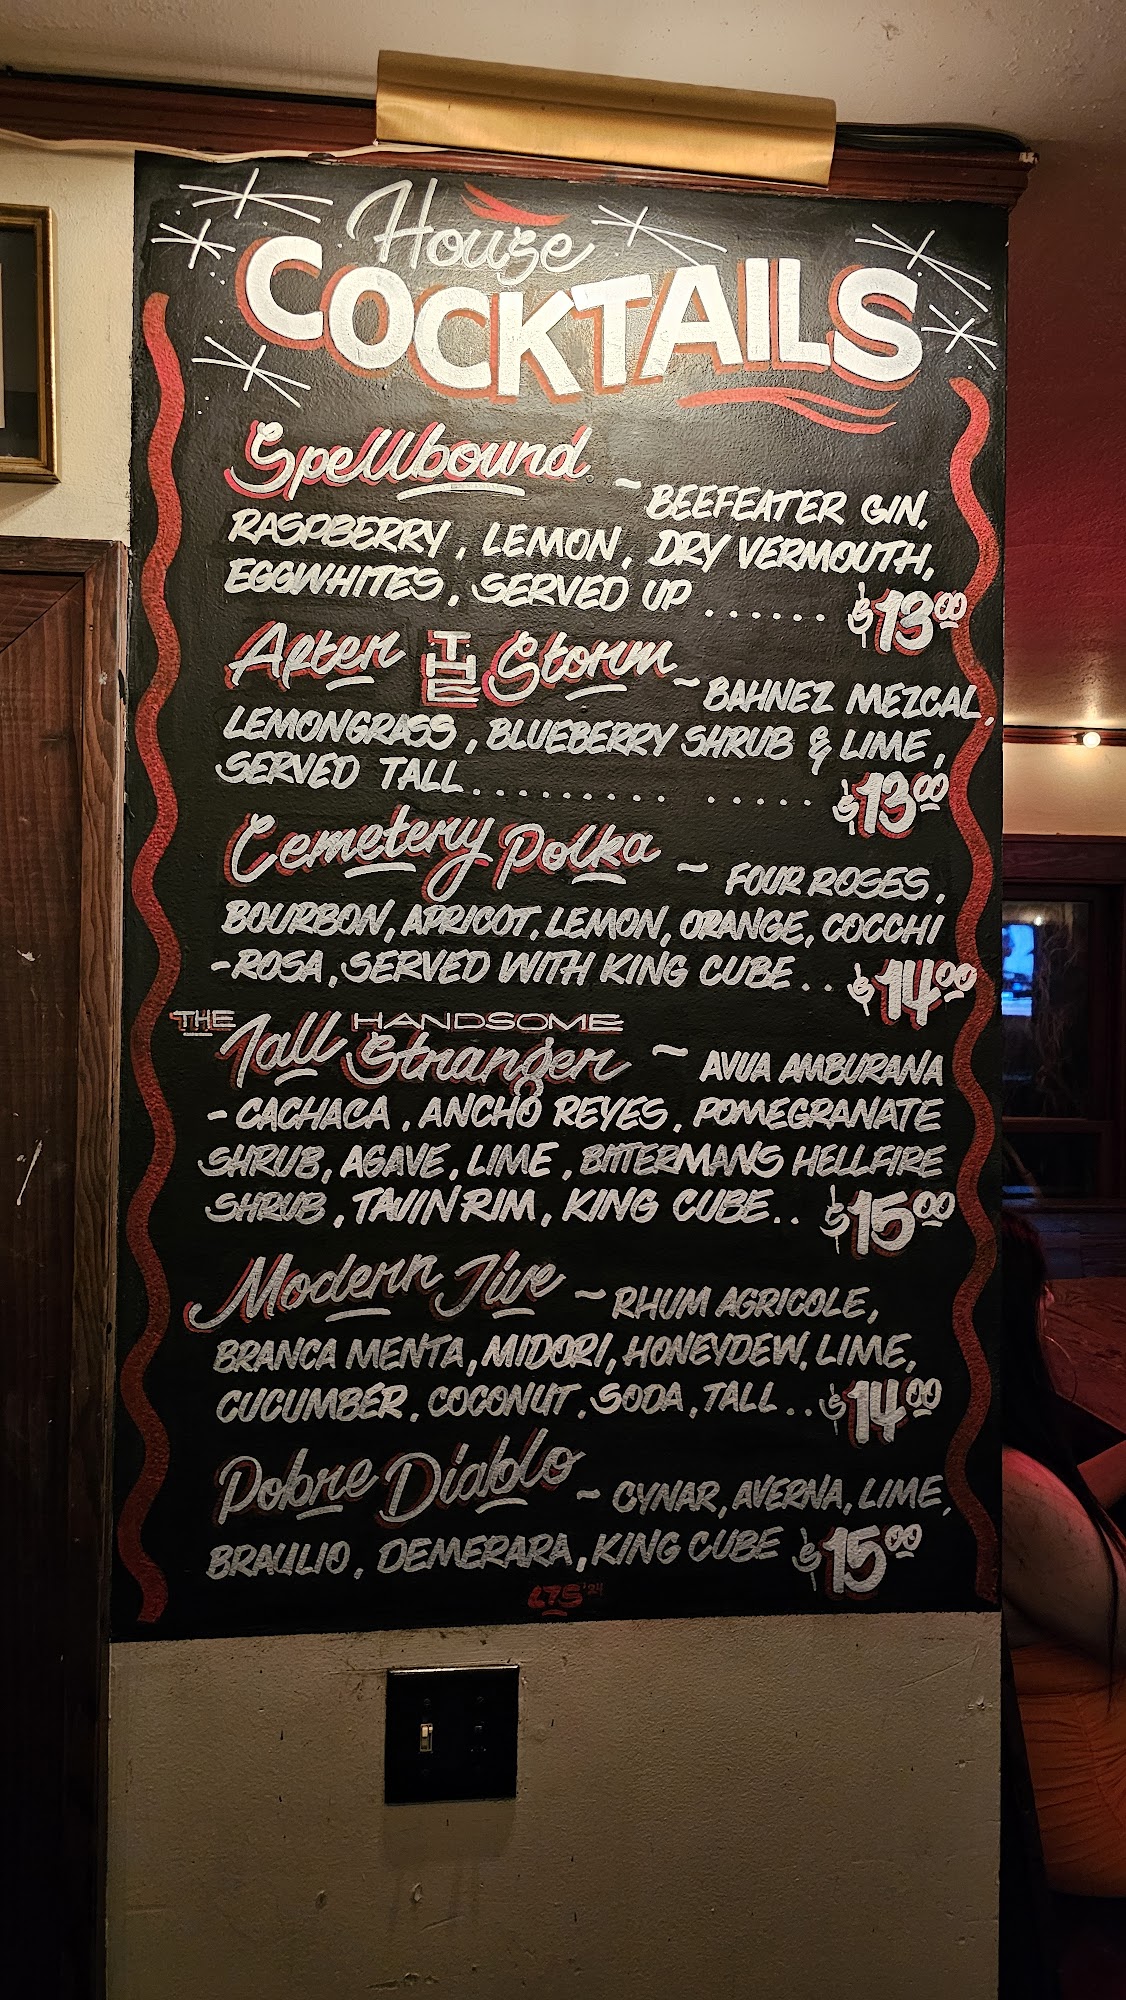 House
COCKTAILS
Spellbound ~ BEEFEATER GIN,
RASPBERRY, LEMON, DRY VERMOUTH,
EGGWHITES, SERVED UP ...... $13.00
After THE Storm ~ BAHNEZ MEZCAL,
LEMONGRASS, BLUEBERRY SHRUB & LIME,
SERVED TALL.......... ..... $13.00
Cemetery Polka ~ FOUR ROSES,
BOURBON, APRICOT, LEMON, ORANGE, COCCHI
-ROSA, SERVED WITH KING CUBE.. $14.00
THE Tall HANDSOME Stranger ~ AVUA AMBURANA
- CACHACA, ANCHO REYES, POMEGRANATE
SHRUB, AGAVE, LIME, BITTERMANS HELLFIRE
SHRUB, TAJIN RIM, KING CUBE.. $15.00
Modern Jive ~ RHUM AGRICOLE,
BRANCA MENTA, MIDORI, HONEYDEW, LIME,
CUCUMBER, COCONUT, SODA, TALL.. $14.00
Pobre Diablo ~ CYNAR, AVERNA, LIME,
BRAULIO, DEMERARA, KING CUBE $15.00
LTS '24